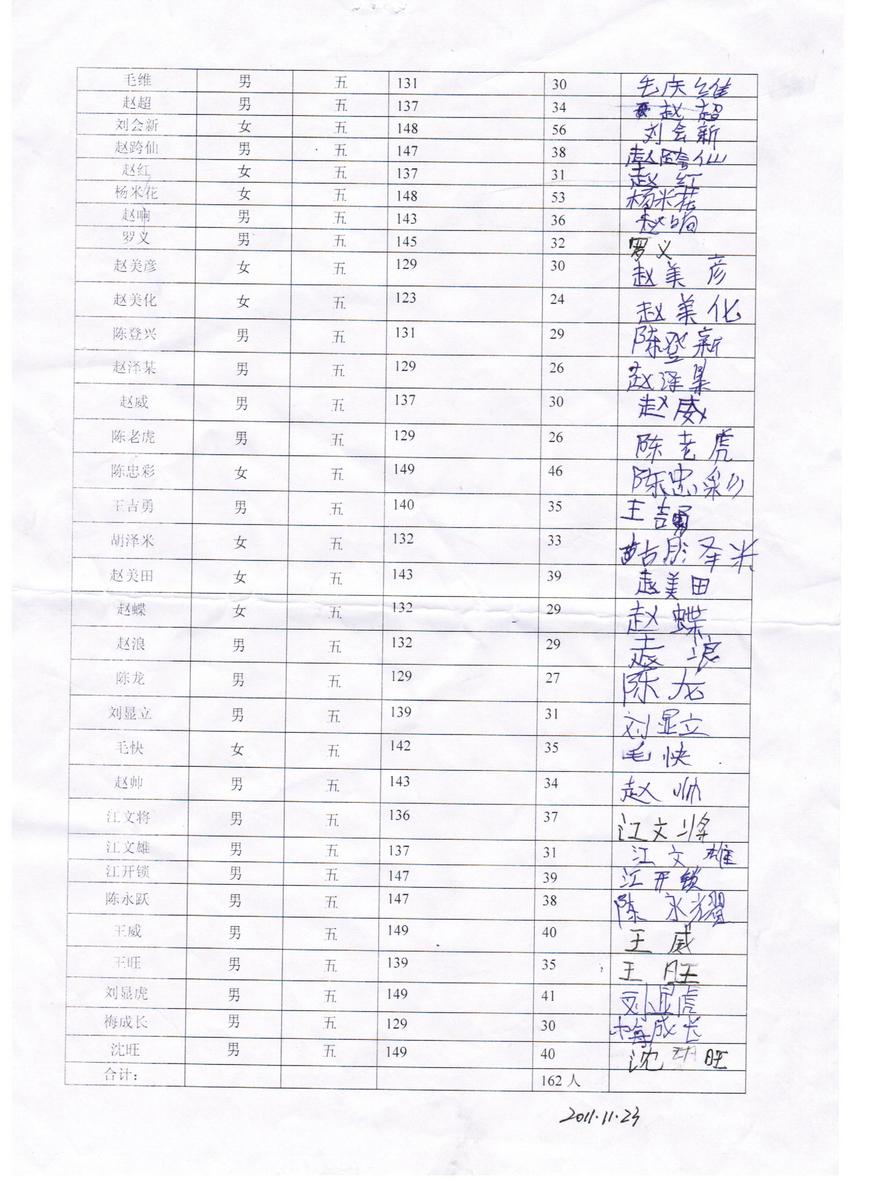 毛维 男 五 131 30 毛庆维
赵超 男 五 137 34 赵超
刘会新 女 五 148 56 刘会新
赵跨仙 男 五 147 38 赵跨仙
赵红 女 五 137 31 赵红
杨米花 女 五 148 53 杨米花
赵响 男 五 143 36 赵响
罗义 男 五 145 32 罗义
赵美彦 女 五 129 30 赵美彦
赵美化 女 五 123 24 赵美化
陈登兴 男 五 131 29 陈登新
赵泽某 男 五 129 26 赵泽某
赵威 男 五 137 30 赵威
陈老虎 男 五 129 26 陈老虎
陈忠彩 女 五 149 46 陈忠彩
王吉勇 男 五 140 35 王吉勇
胡泽米 女 五 132 33
赵美田 女 五 143 39 赵美田
赵蝶 女 五 132 29 赵蝶
赵浪 男 五 132 29 赵浪
陈龙 男 五 129 27 陈龙
刘显立 男 五 139 31 刘显立
毛快 女 五 142 35 毛快
赵帅 男 五 143 34 赵帅
江文将 男 五 136 37 江文将
江文雄 男 五 137 31 江文雄
江开锁 男 五 147 39 江开锁
陈永跃 男 五 147 38 陈永耀
王威 男 五 149 40 王威
王旺 男 五 139 35 王旺
刘显虎 男 五 149 41 刘显虎
梅成长 男 五 129 30 梅成长
沈旺 男 五 149 40 沈 旺
合计： 162人
2011.11.23